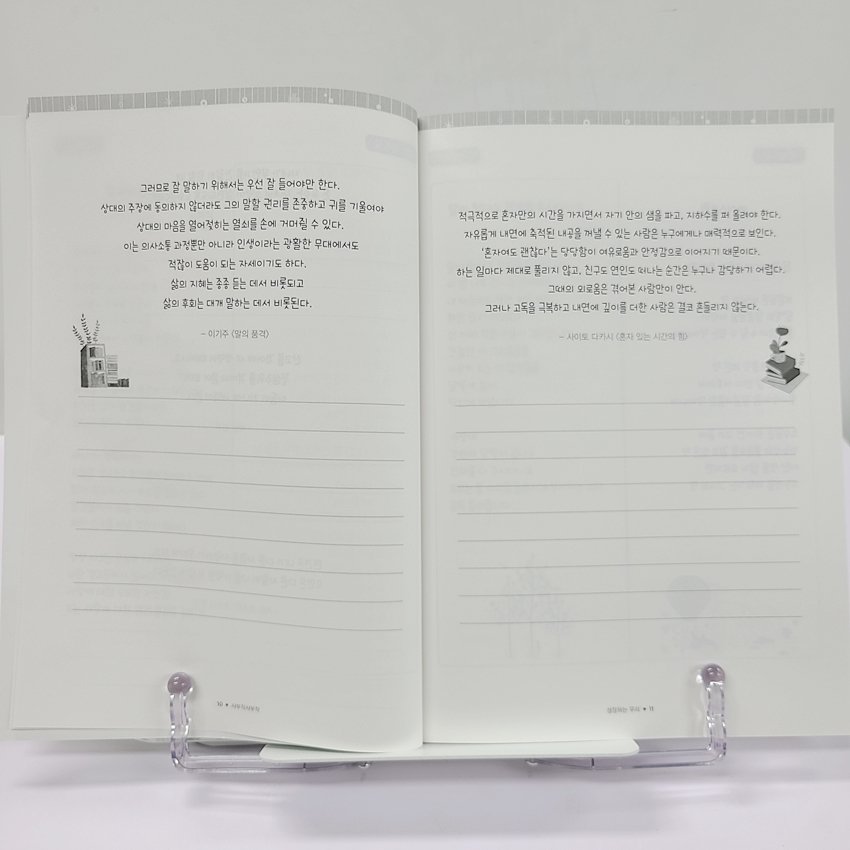 그러므로 잘 말하기 위해서는 우선 잘 들어야만 한다.
상대의 주장에 동의하지 않더라도 그의 말할 권리를 존중하고 귀를 기울여야
상대의 마음을 열어젖히는 열쇠를 손에 거머쥘 수 있다.
이는 의사소통 과정뿐만 아니라 인생이라는 광활한 무대에서도
적잖이 도움이 되는 자세이기도 하다.
삶의 지혜는 종종 듣는 데서 비롯되고
삶의 후회는 대개 말하는 데서 비롯된다.
– 이기주 <말의 품격>
적극적으로 혼자만의 시간을 가지면서 자기 안의 샘을 파고, 지하수를 퍼 올려야 한다.
자유롭게 내면에 축적된 내공을 꺼낼 수 있는 사람은 누구에게나 매력적으로 보인다.
‘혼자여도 괜찮다’는 당당함이 여유로움과 안정감으로 이어지기 때문이다.
하는 일마다 제대로 풀리지 않고, 친구도 연인도 떠나는 순간은 누구나 감당하기 어렵다.
그때의 외로움은 겪어본 사람만이 안다.
그러나 고독을 극복하고 내면에 깊이를 더한 사람은 결코 흔들리지 않는다.
– 사이토 다카시 <혼자 있는 시간의 힘>